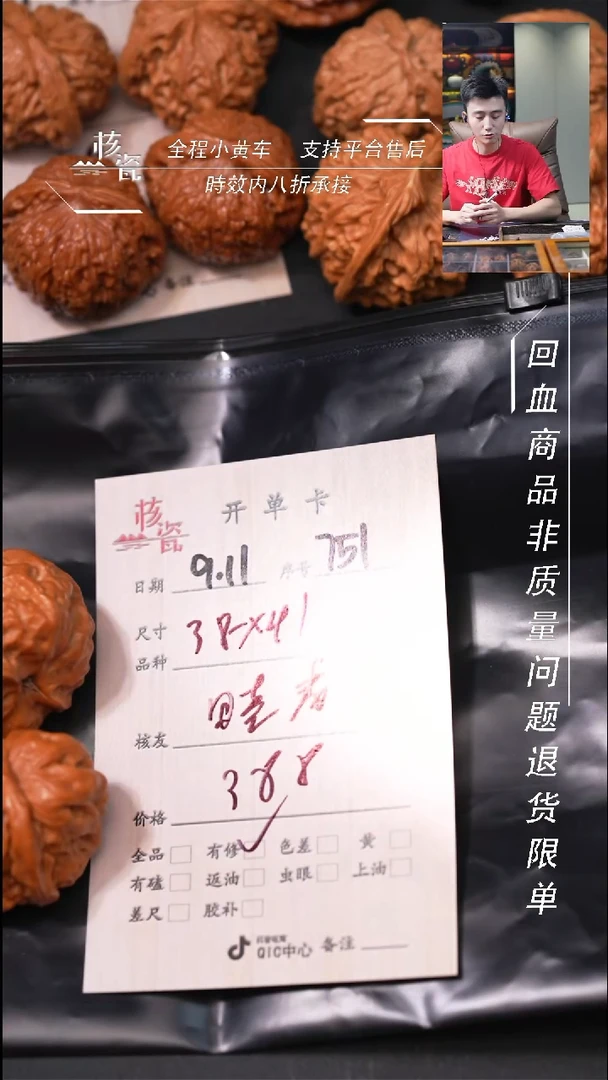 核瓷
全程小黄车 支持平台售后
時效内八折承接
回血商品非质量问题退货限单
备注
核瓷
开单卡
日期 9.11 序号 751
尺寸 38×41
品种
核友
价格 388
全品 有修 ✓ 色差 黄
有磕 返油 虫眼 上油
差尺 胶补
QIC中心 备注